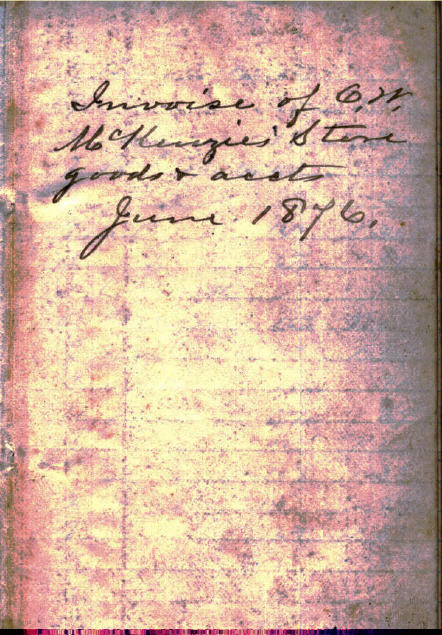 Invoise of C.W.
McKenzies Store
goods & accts
June 1876.